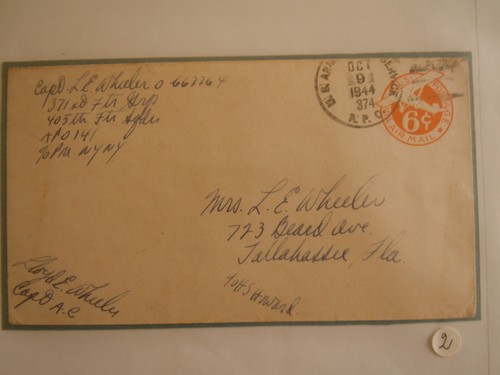 Capt L. E. Wheeler O-667764
371st Ftr Grp
405th Ftr Sqdn
APO 141
% PM. NY NY
U. S. ARMY
OCT
9
1944
374
A. P. O.
POSTAGE
6¢
AIR MAIL
Mrs. L. E. Wheeler
723 Beard ave.
Tallahassie, Fla.
Lloyd E. Wheeler
Capt A-C
2